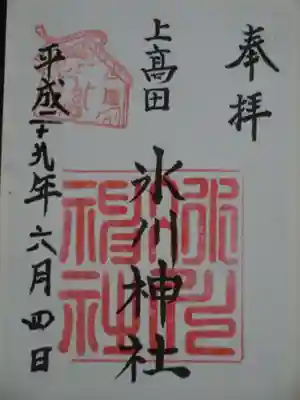 奉拝
上高田
氷川神社
平成二十九年六月四日
氷川
神社